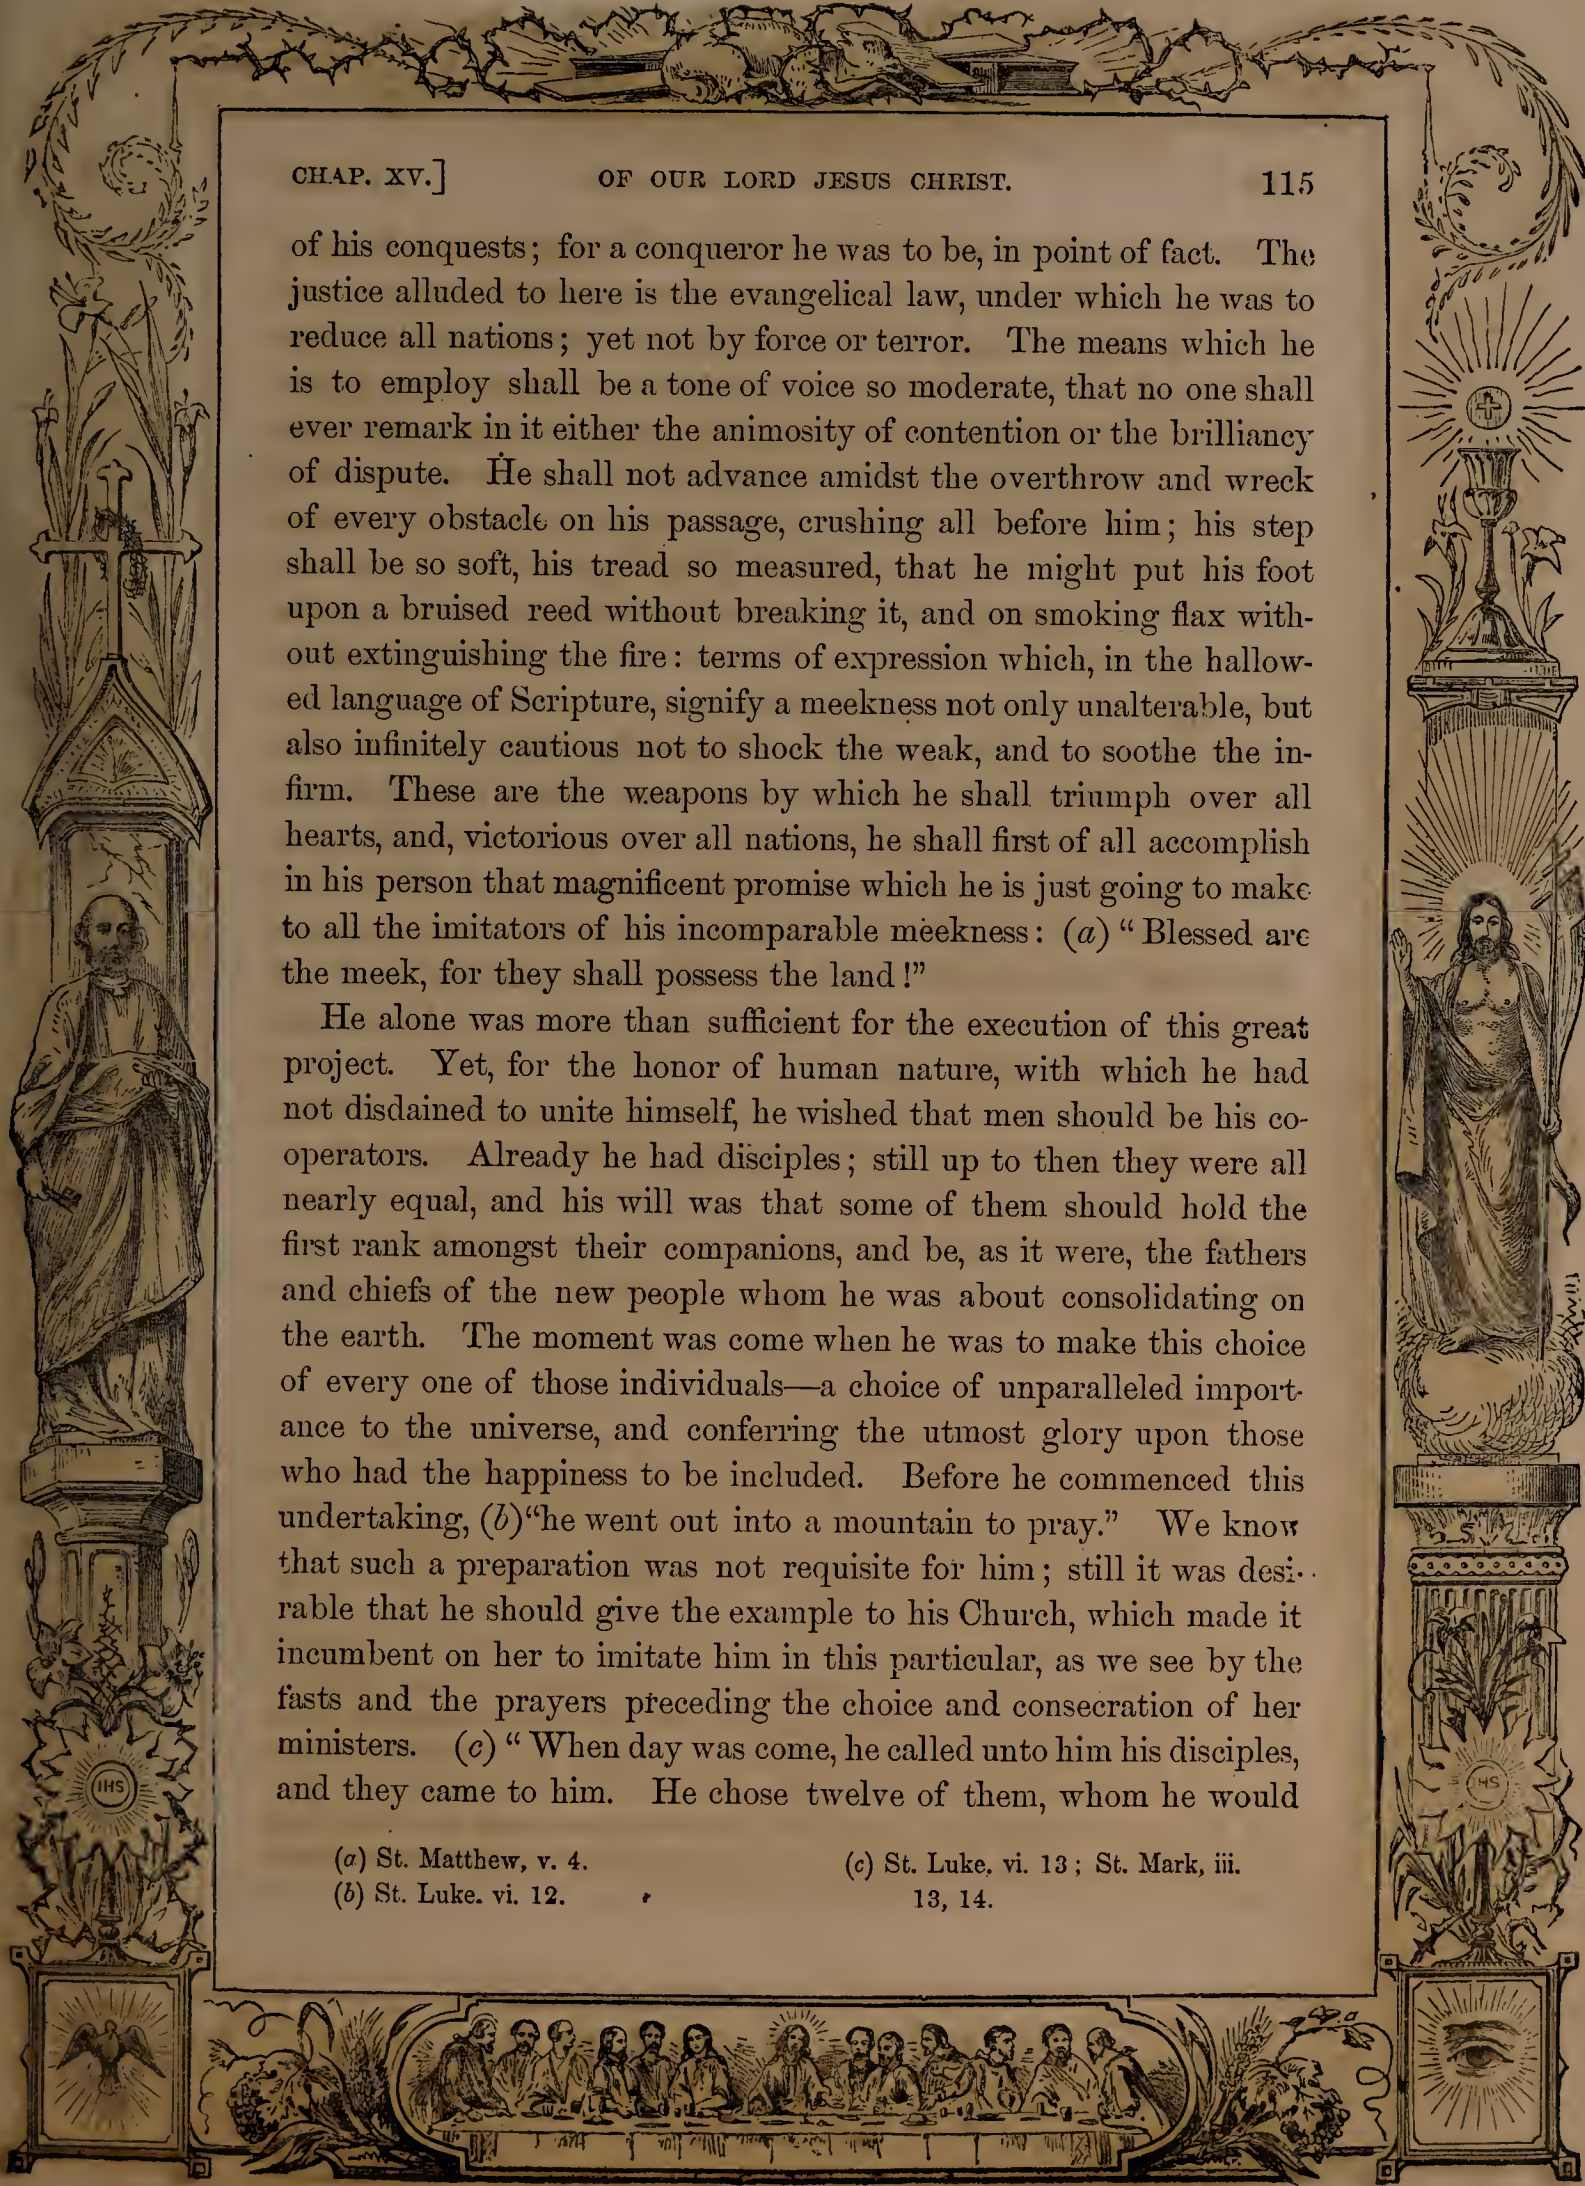 CHAP. XV.] OF OUR LORD JESUS CHRIST. 115
of his conquests; for a conqueror he was to be, in point of fact. The
justice alluded to here is the evangelical law, under which he was to
reduce all nations; yet not by force or terror. The means which he
is to employ shall be a tone of voice so moderate, that no one shall
ever remark in it either the animosity of contention or the brilliancy
of dispute. He shall not advance amidst the overthrow and wreck
of every obstacle on his passage, crushing all before him; his step
shall be so soft, his tread so measured, that he might put his foot
upon a bruised reed without breaking it, and on smoking flax with-
out extinguishing the fire: terms of expression which, in the hallow-
ed language of Scripture, signify a meekness not only unalterable, but
also infinitely cautious not to shock the weak, and to soothe the in-
firm. These are the weapons by which he shall triumph over all
hearts, and, victorious over all nations, he shall first of all accomplish
in his person that magnificent promise which he is just going to make
to all the imitators of his incomparable meekness: (a) “Blessed are
the meek, for they shall possess the land!”
He alone was more than sufficient for the execution of this great
project. Yet, for the honor of human nature, with which he had
not disdained to unite himself, he wished that men should be his co-
operators. Already he had disciples; still up to then they were all
nearly equal, and his will was that some of them should hold the
first rank amongst their companions, and be, as it were, the fathers
and chiefs of the new people whom he was about consolidating on
the earth. The moment was come when he was to make this choice
of every one of those individuals—a choice of unparalleled import-
ance to the universe, and conferring the utmost glory upon those
who had the happiness to be included. Before he commenced this
undertaking, (b) “he went out into a mountain to pray.” We know
that such a preparation was not requisite for him; still it was desi-
rable that he should give the example to his Church, which made it
incumbent on her to imitate him in this particular, as we see by the
fasts and the prayers preceding the choice and consecration of her
ministers. (c) “When day was come, he called unto him his disciples,
and they came to him. He chose twelve of them, whom he would
(a) St. Matthew, v. 4.
(b) St. Luke. vi. 12.
(c) St. Luke. vi. 13; St. Mark, iii.
13, 14.
IHS
IHS